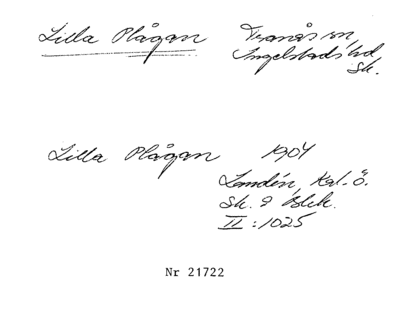 Lilla Plågan Tranås sn,
Ingelstads hd
Sk.
Lilla Plågan 1904
Landén, Kal. ö.
Sk. o Blek.
II : 1025
Nr 21722